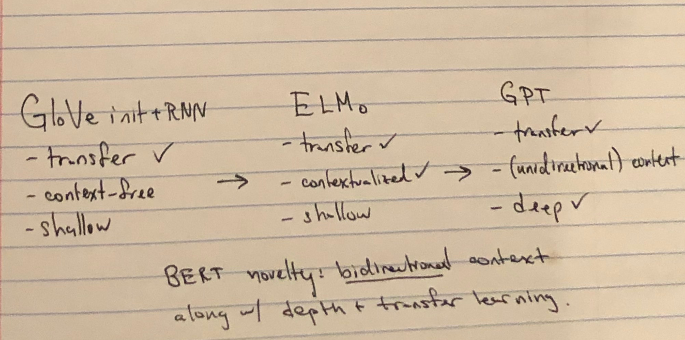 GloVe init + RNN
- transfer ✓
- context-free
- shallow
→
ELMo
- transfer ✓
- contextualized ✓
- shallow
→
GPT
- transfer ✓
- (unidirectional) context
- deep ✓
BERT novelty: bidirectional context
along w/ depth + transfer learning.